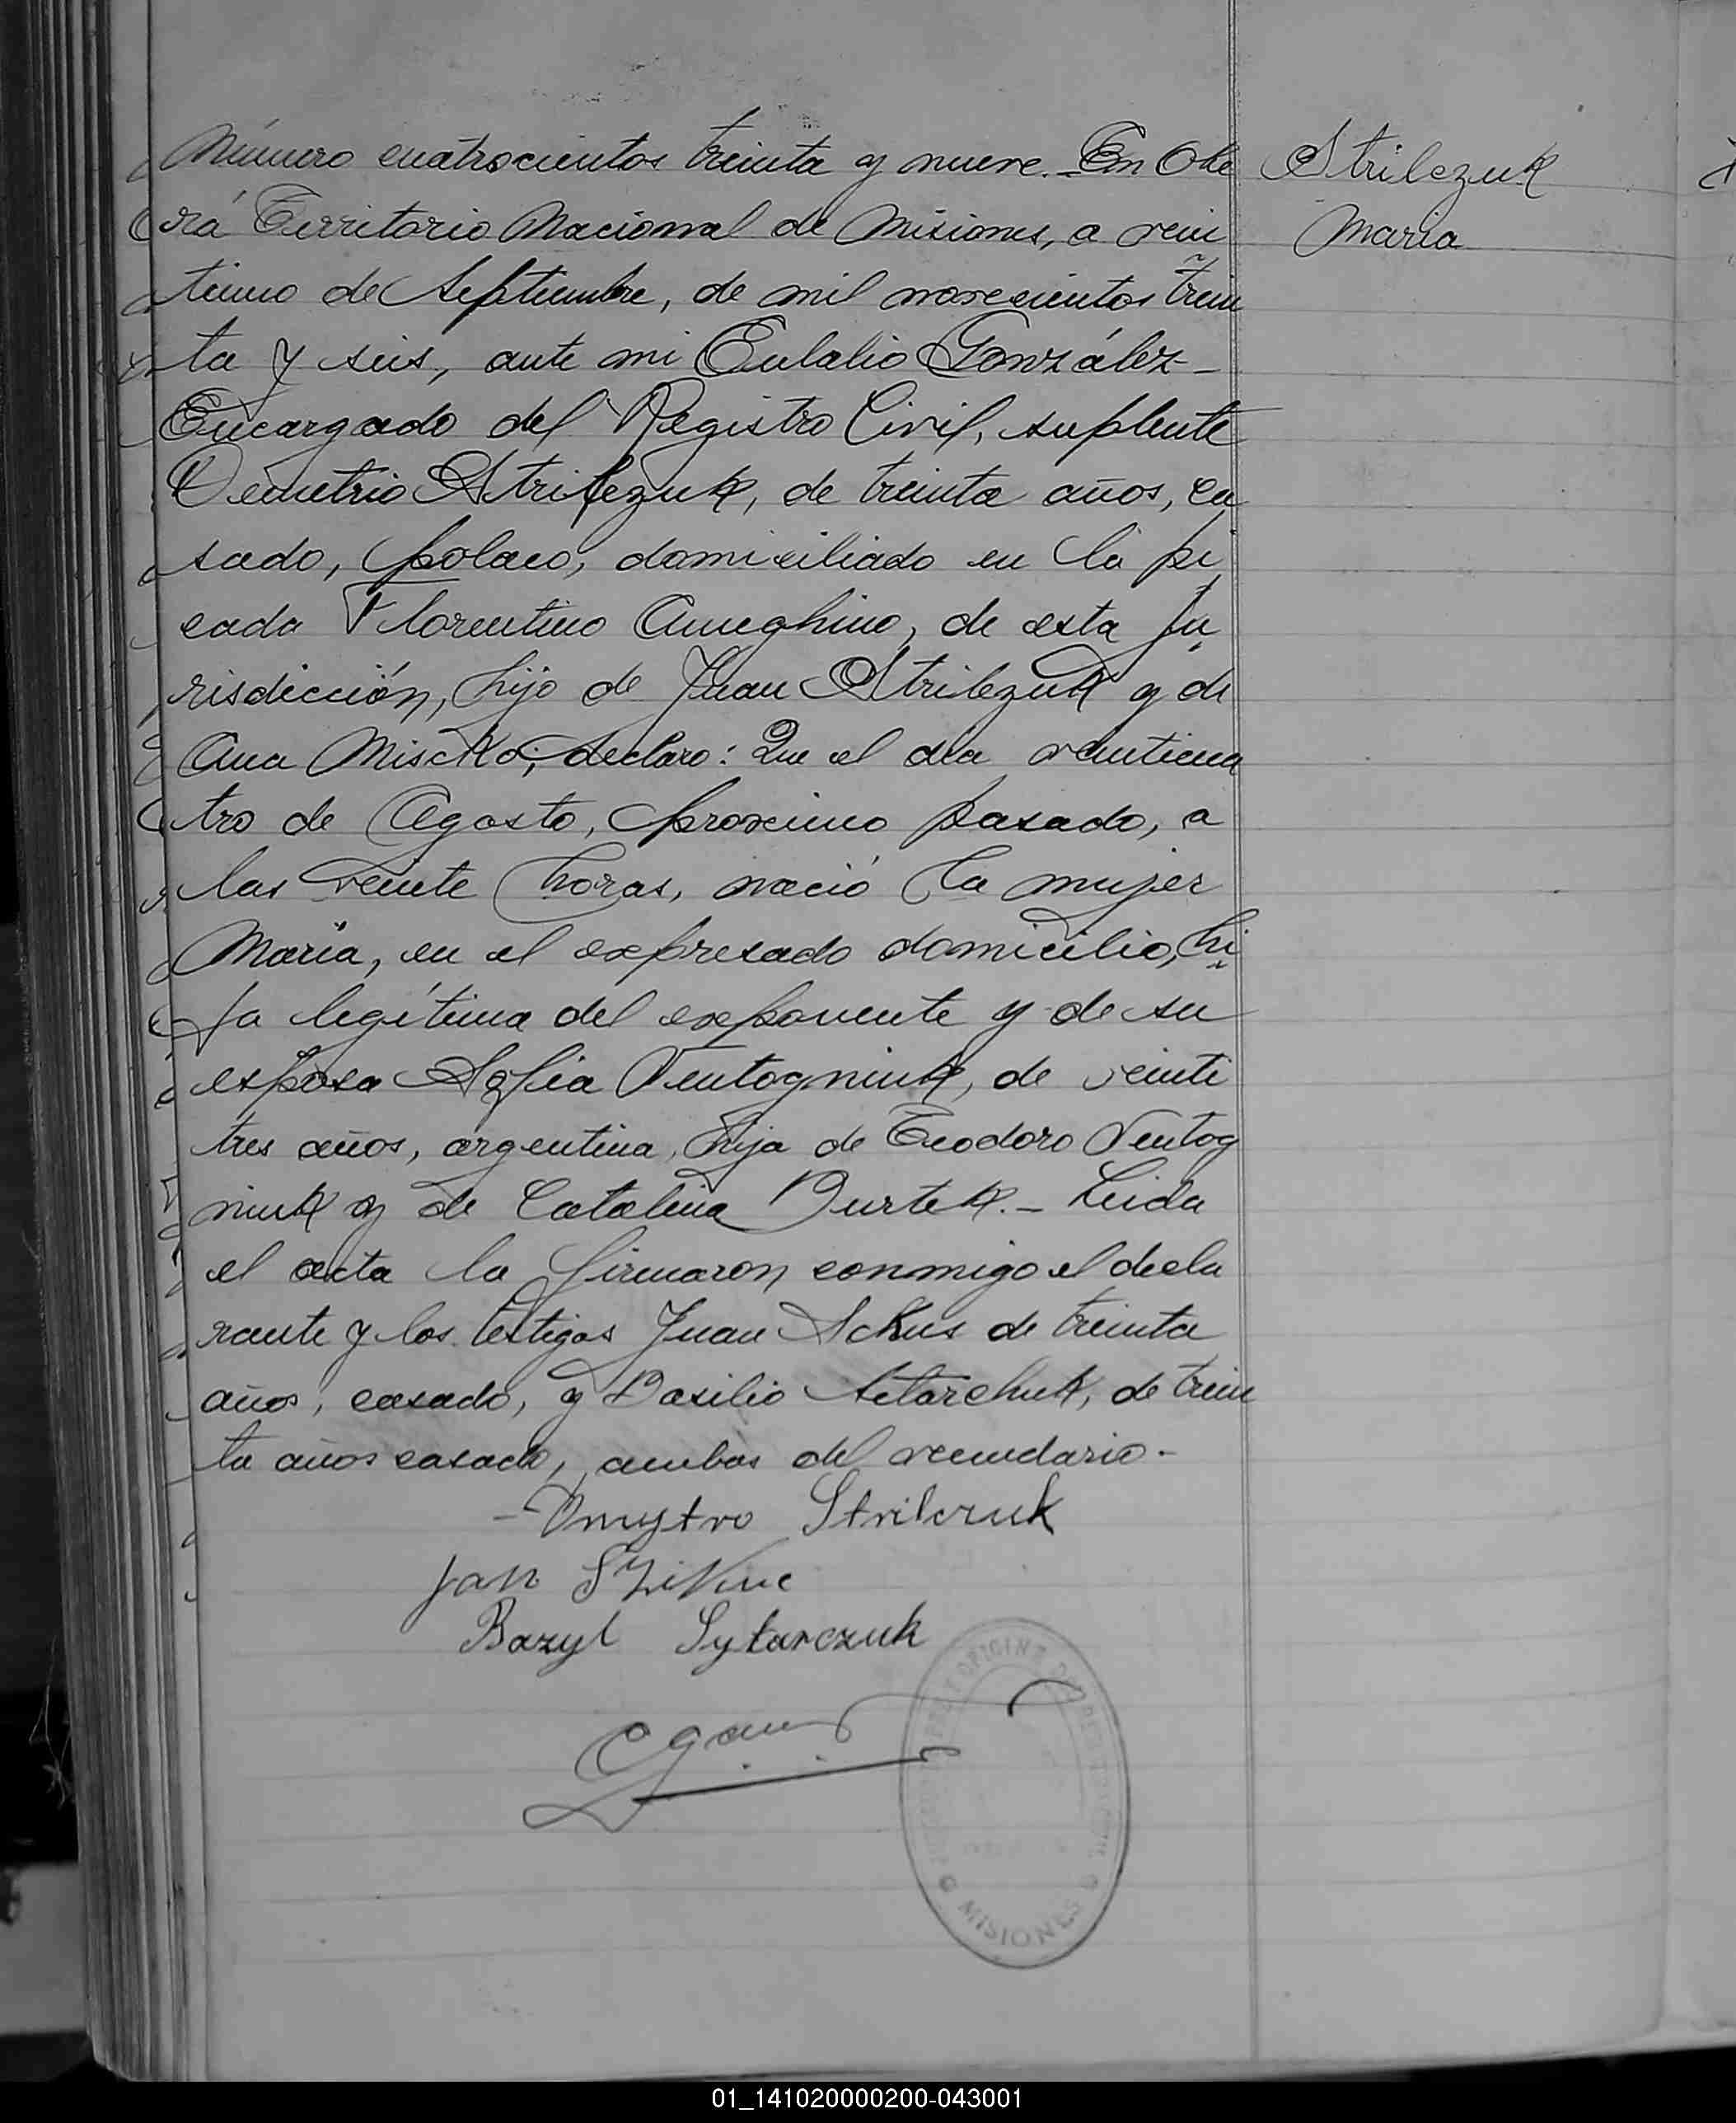 Número cuatrocientos treinta y nueve. En Obe
Strilczuk
rá Territorio Nacional de Misiones, a vein
María
tiuno de Septiembre, de mil novecientos trein
ta y seis, ante mi Eulalio González
Encargado del Registro Civil, suplente
Demetrio Strilczuk, de treinta años, ca
sado, polaco, domiciliado en la pi
cada Florentino Ameghino, de esta ju
risdicción, hijo de Juan Strilczuk y de
Ana Miscko; declaro: Que el dia veinticua
tro de Agosto, proximo pasado, a
las veinte horas, nació la mujer
María, en el expresado domicilio, hi
ja legítima del exponente y de su
esposa Sofia Ventogniuk, de veinti
tres años, argentina, hija de Teodoro Ventog
niuk y de Catalina Burtek.- Leida
el acta la firmaron conmigo el decla
rante y los testigos Juan Sckus de treinta
años, casado, y Basilio Setarchuk, de trein
ta años casado, ambos del vecindario.-
Dmytro Strilczuk
Jan
Bazyl Sytarczuk
MISIONES
01_141020000200-043001